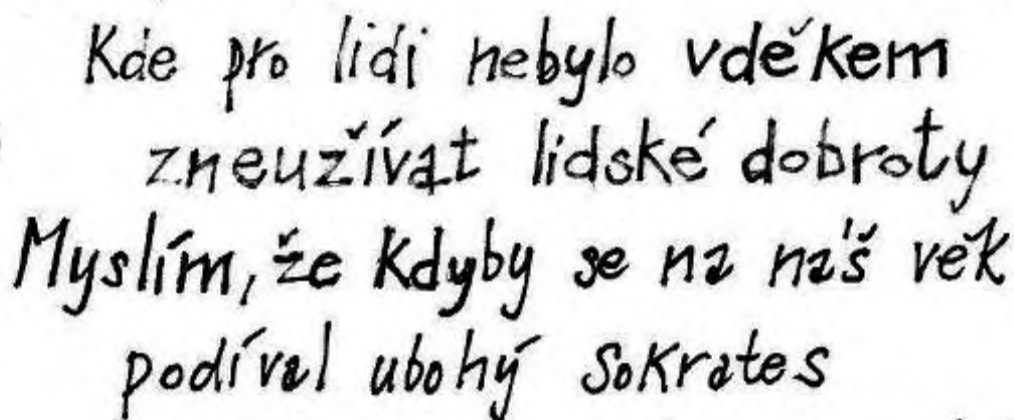 Kde pro lidi nebylo vděkem
zneužívat lidské dobroty
Myslím, že kdyby se na náš věk
podíval ubohý sokrates